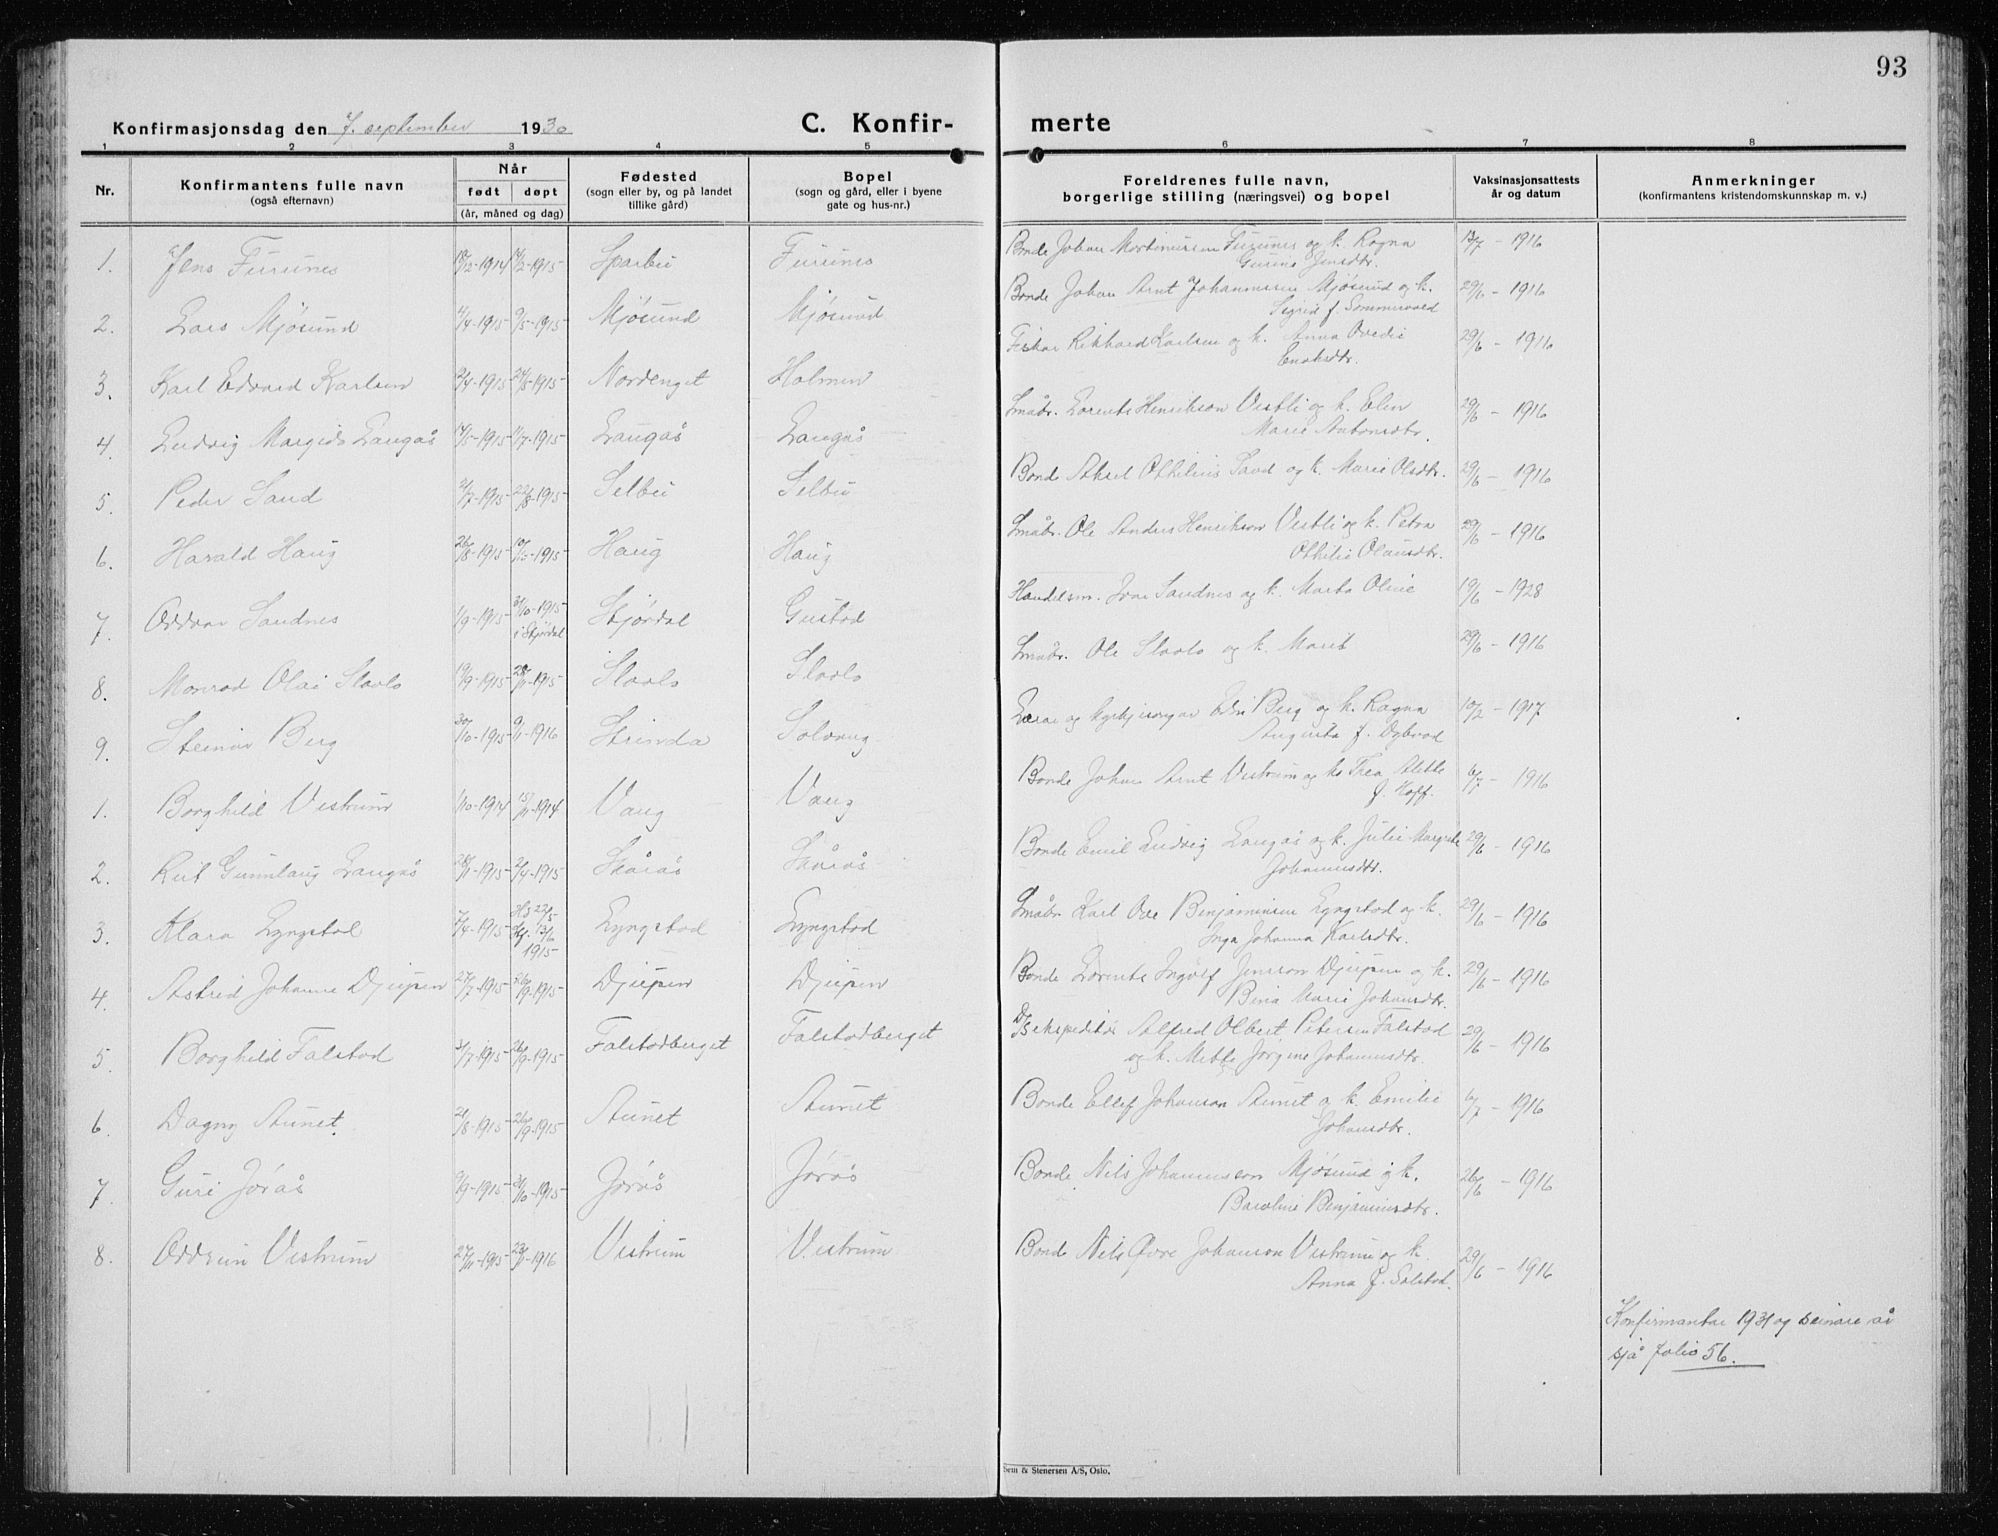 93
Konfirmasjonsdag den 7. september 1930
C. Konfir- merte
1 2 3 4 5 6 7 8
Nr.
Konfirmantens fulle navn
(også efternavn)
Når
født døpt
(år, måned og dag)
Fødested
(sogn eller by, og på landet
tillike gård)
Bopel
(sogn og gård, eller i byene
gate og hus-nr.)
Foreldrenes fulle navn,
borgerlige stilling (næringsvei) og bopel
Vaksinasjonsattests
år og datum
Anmerkninger
(konfirmantens kristendomskunnskap m. v.)
1. Jens Furunes 18/12-1914 14/2-1915 Sparbu Furunes Bonde Johan Martinussen Furunes og k. Ragna 13/7 - 1916
Gurine Jensdtr.
2. Lars Mjøsund 4/4-1915 9/5-1915 Mjøsund Mjøsund Bonde Johan Arnt Johannessen Mjøsund og k. 29/6 - 1916
Sigrid f. Sommervold
3. Karl Edvard Karlsen 2/4-1915 24/5-1915 Nordenget Holmen Fiskar Rikhard Karlsen og k. Anna Ovedie 29/6 - 1916
Enoksdtr.
4. Ludvig Margido Langås 14/5-1915 11/7-1915 Langås Langås Småbr. Lorents Henrikson Vestli og k. Elen 29/6 - 1916
Marie Antonsdtr.
5. Peder Sand 2/7-1915 22/8-1915 Selbu Selbu Bonde Aksel Othilius Sand og k. Marie Olsdtr. 29/6 - 1916
6. Harald Haug 26/8-1915 10/10-1915 Haug Haug Småbr. Ole Andreas Henrikson Vestli og k. Petra 29/6 - 1916
Othilie Olausdtr.
7. Oddvar Sandnes 1/9-1915 31/10-1915 Stjørdal Gustad Handelsm. Ivar Sandnes og k. Marta Oline 19/6 - 1928
i Stjørdal
8. Monrad Olai Slaolo 19/9-1915 28/11-1915 Slaolo Slaolo Småbr. Ole Slaolo og k. Marit 29/6 - 1916
9. Steinar Berg 30/10-1915 9/1-1916 Strinda Solvang Lærar og kyrkjesongar Edv. Berg og k. Ragna 10/2 - 1917
Augusta f. Dybvad
1. Borghild Vestrum 1/10-1914 15/11-1914 Vang Vang Bonde Johan Arnt Vestrum og k. Trea Alette 6/7 - 1916
f. Hopf.
2. Rut Gunnlaug Langås 28/1-1915 2/4-1915 Skårås Skårås Bonde Emil Ludvig Langås og k. Julie Margrete 29/6 - 1916
Johannesdtr.
3. Klara Lyngstad 7/4-1915 Hd 22/5 Lyngstad Lyngstad Småbr. Karl Ove Benjaminsen Lyngstad og k. 29/6 - 1916
Stf. 13/6 Inga Johanna Karlsdtr.
1915
4. Astrid Johanne Djupen 27/7-1915 26/9-1915 Djupen Djupen Bonde Lorents Ingolf Jensson Djupen og k. 29/6 - 1916
Bina Marie Johansdtr.
5. Borghild Falstad 31/7-1915 26/9-1915 Falstadberget Falstadberget D/S ekspeditør Alfred Olbert Petersen Falstad 29/6 - 1916
og k. Mette Jørgine Johannesdtr.
6. Dagny Aunet 21/8-1915 26/9-1915 Aunet Aunet Bonde Ellef Johanson Aunet og k. Emilie 6/7 - 1916
Johansdtr.
7. Guri Jørås 9/9-1915 31/10-1915 Jørås Jørås Bonde Nils Johannesson Mjøsund og k. 26/6 - 1916
Baroline Benjaminsdtr.
8. Oddrun Vestrum 27/11-1915 23/1-1916 Vestrum Vestrum Bonde Nils Øvre Johanson Vestrum og k. 29/6 - 1916
Anna f. Salstad.
Konfirmantar 1931 og seinare år
sjå folio 56.
Sem & Stenersen A/S, Oslo.